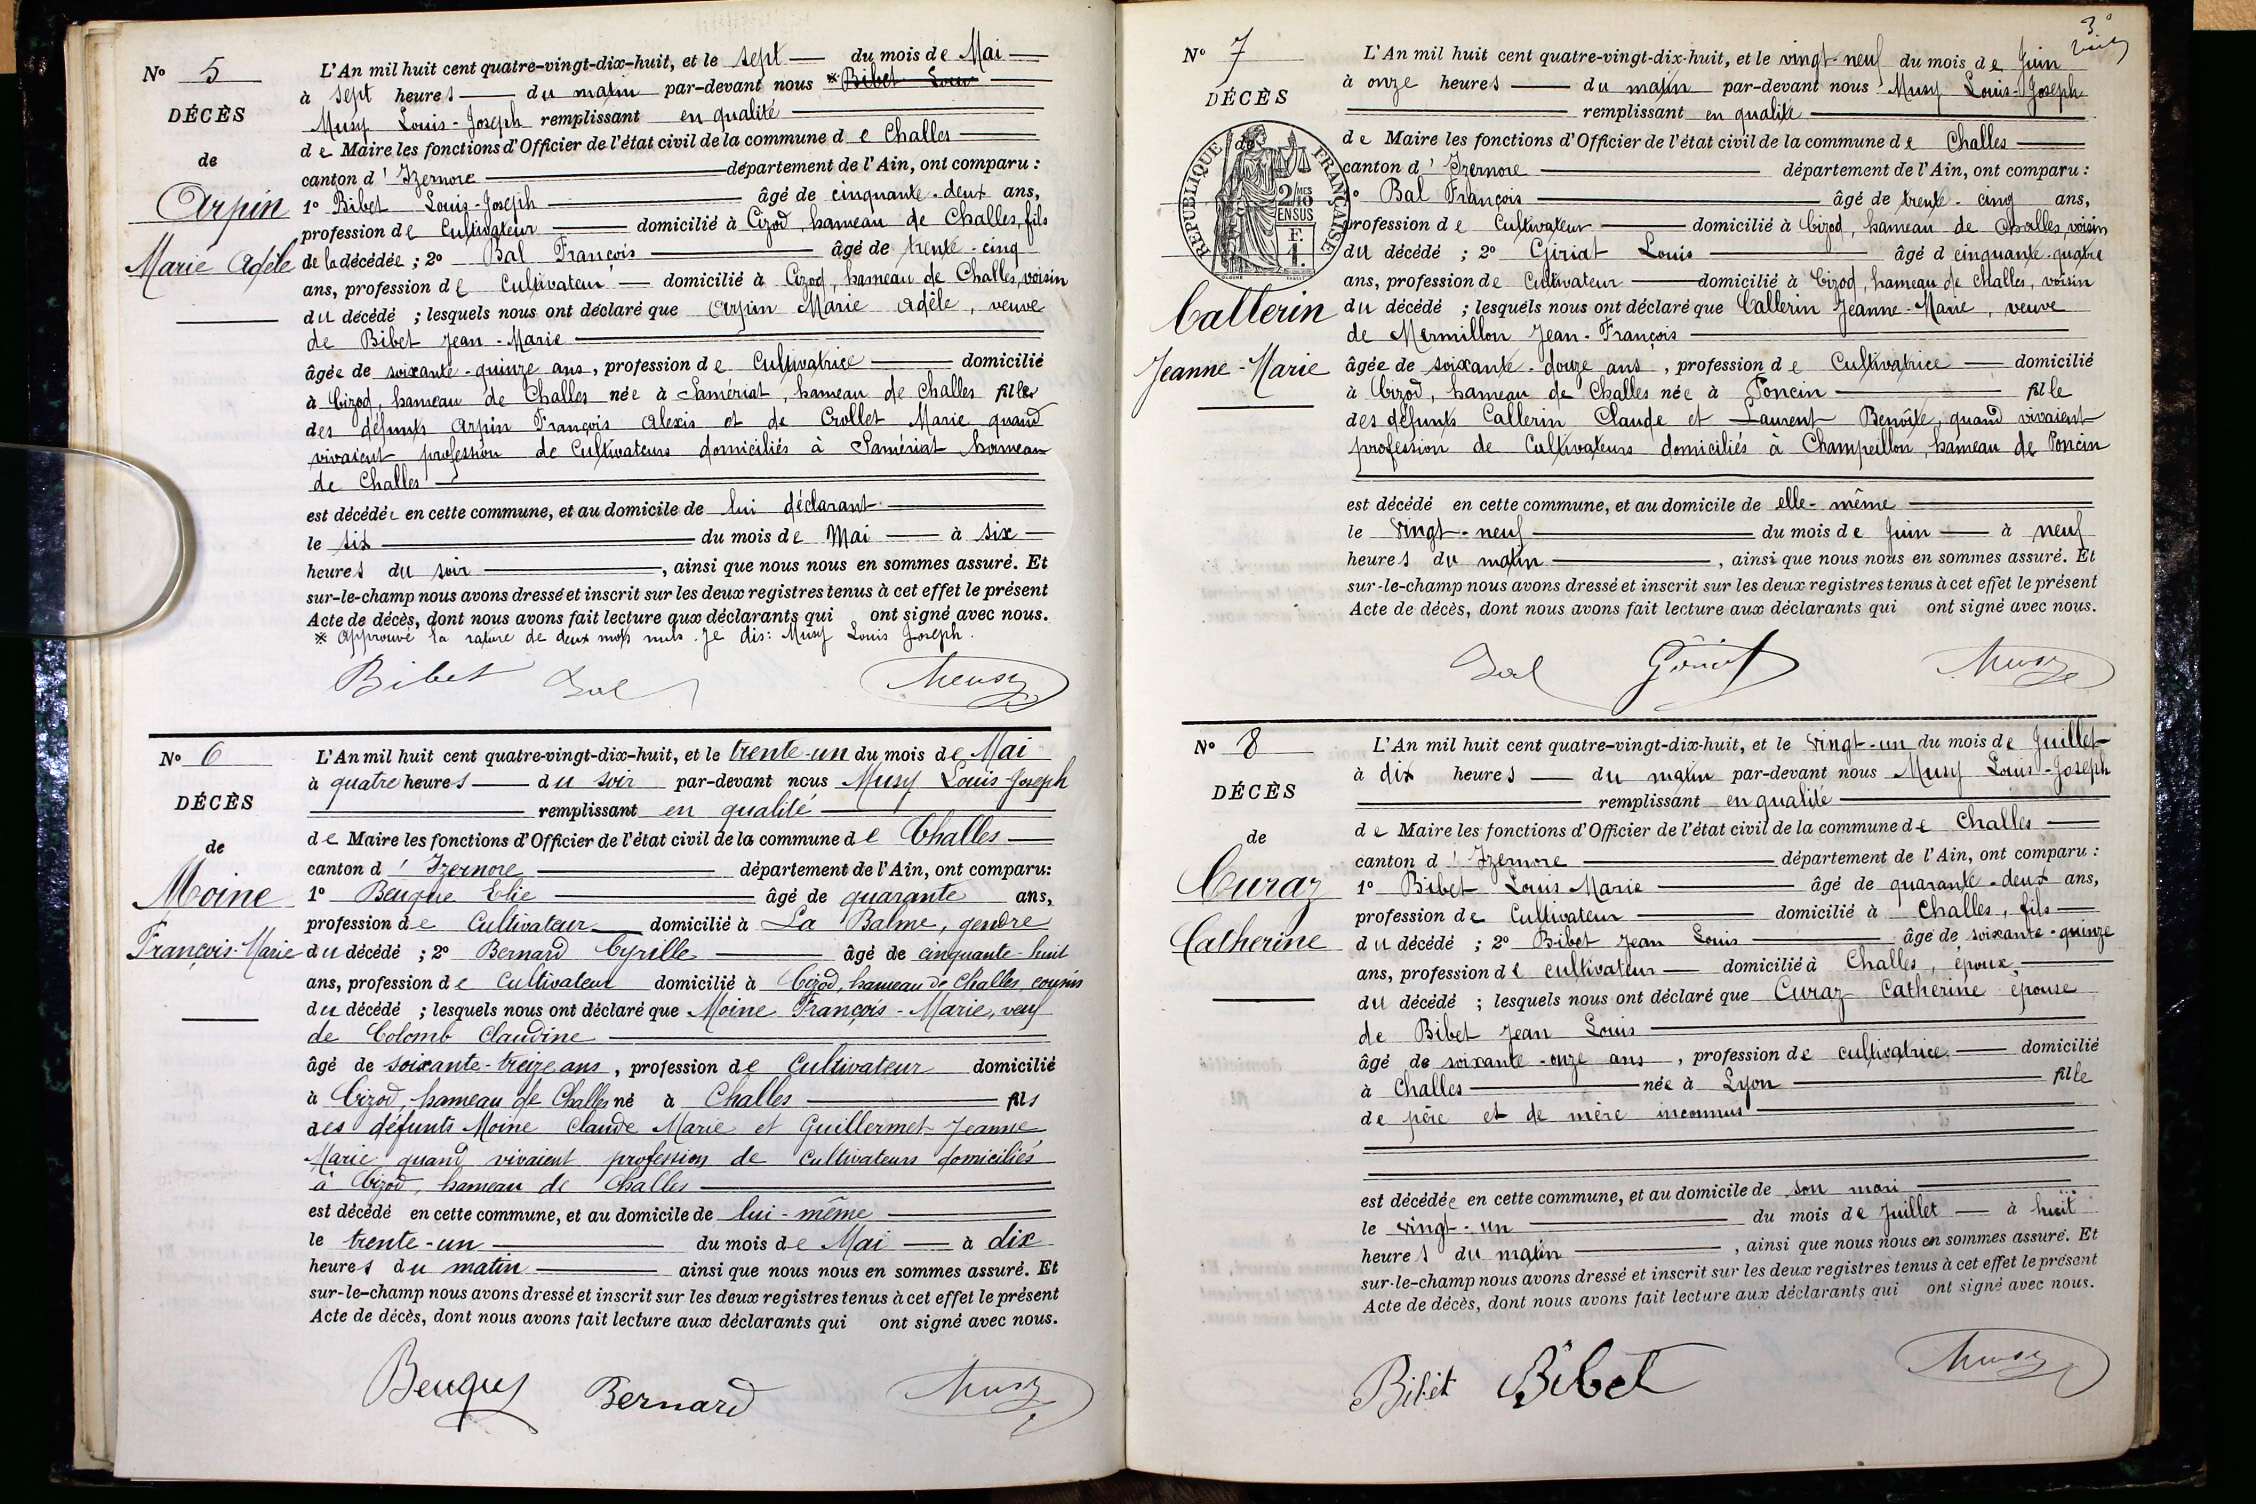 N° 5
DÉCÈS
de
Arpin
Marie Adèle
L'An mil huit cent quatre-vingt-dix-huit, et le sept du mois de Mai
à sept heures du matin par-devant nous * Bibet Louis
Musy Louis-Joseph remplissant en qualité
de Maire les fonctions d'Officier de l'état civil de la commune de Challes
canton d'Izernore département de l'Ain, ont comparu :
1° Bibet Louis-Joseph âgé de cinquante-deux ans,
profession de Cultivateur domicilié à Cizod, hameau de Challes, fils
de la décédée ; 2° Bal François âgé de trente-cinq
ans, profession de Cultivateur domicilié à Cizod, hameau de Challes, voisin
du décédé ; lesquels nous ont déclaré que Arpin Marie Adèle, veuve
de Bibet Jean-Marie
âgée de soixante-quinze ans, profession de Cultivatrice domicilié
à Cizod, hameau de Challes née à Samériat, hameau de Challes fille
des défunts Arpin François Alexis et de Crollet Marie quand
vivaient profession de Cultivateurs domiciliés à Samériat hameau
de Challes
est décédée en cette commune, et au domicile de lui déclarant
le six du mois de Mai à six
heures du soir , ainsi que nous nous en sommes assuré. Et
sur-le-champ nous avons dressé et inscrit sur les deux registres tenus à cet effet le présent
Acte de décès, dont nous avons fait lecture aux déclarants qui ont signé avec nous.
* Approuvé la rature de deux mots nuls. Je dis : Musy Louis Joseph.
Bibet Bal Musy
N° 6
DÉCÈS
de
Moine
François-Marie
L'An mil huit cent quatre-vingt-dix-huit, et le trente-un du mois de Mai
à quatre heures du soir par-devant nous Musy Louis-Joseph
remplissant en qualité
de Maire les fonctions d'Officier de l'état civil de la commune de Challes
canton d'Izernore département de l'Ain, ont comparu :
1° Beuque Elie âgé de quarante ans,
profession de Cultivateur domicilié à La Balme, gendre
du décédé ; 2° Bernard Cyrille âgé de cinquante-huit
ans, profession de Cultivateur domicilié à Cizod, hameau de Challes, cousin
du décédé ; lesquels nous ont déclaré que Moine François-Marie, veuf
de Colomb Claudine
âgé de soixante-treize ans, profession de Cultivateur domicilié
à Cizod, hameau de Challes né à Challes fils
des défunts Moine Claude Marie et Guillermet Jeanne
Marie quand vivaient profession de Cultivateurs domiciliés
à Cizod, hameau de Challes
est décédé en cette commune, et au domicile de lui-même
le trente-un du mois de Mai à dix
heures du matin ainsi que nous nous en sommes assuré. Et
sur-le-champ nous avons dressé et inscrit sur les deux registres tenus à cet effet le présent
Acte de décès, dont nous avons fait lecture aux déclarants qui ont signé avec nous.
Beuque Bernard Musy
3°
N° 7
DÉCÈS
de
RÉPUBLIQUE FRANÇAISE
2/10 EN SUS
Callerin
Jeanne-Marie
L'An mil huit cent quatre-vingt-dix-huit, et le vingt-neuf du mois de Juin
à onze heures du matin par-devant nous Musy Louis-Joseph
remplissant en qualité
de Maire les fonctions d'Officier de l'état civil de la commune de Challes
canton d'Izernore département de l'Ain, ont comparu :
1° Bal François âgé de trente-cinq ans,
profession de Cultivateur domicilié à Cizod, hameau de Challes, voisin
du décédé ; 2° Giriat Louis âgé d cinquante-quatre
ans, profession de Cultivateur domicilié à Cizod, hameau de Challes, voisin
du décédé ; lesquels nous ont déclaré que Callerin Jeanne-Marie, veuve
de Mermillon Jean-François
âgée de soixante-douze ans, profession de Cultivatrice domicilié
à Cizod, hameau de Challes née à Poncin fille
des défunts Callerin Claude et Laurent Benoîte, quand vivaient
profession de Cultivateurs domiciliés à Champeillon, hameau de Poncin
est décédé en cette commune, et au domicile de elle-même
le vingt-neuf du mois de Juin à neuf
heures du matin , ainsi que nous nous en sommes assuré. Et
sur-le-champ nous avons dressé et inscrit sur les deux registres tenus à cet effet le présent
Acte de décès, dont nous avons fait lecture aux déclarants qui ont signé avec nous.
Bal Giriat Musy
N° 8
DÉCÈS
de
Curaz
Catherine
L'An mil huit cent quatre-vingt-dix-huit, et le vingt-un du mois de Juillet
à dix heures du matin par-devant nous Musy Louis-Joseph
remplissant en qualité
de Maire les fonctions d'Officier de l'état civil de la commune de Challes
canton d'Izernore département de l'Ain, ont comparu :
1° Bibet Louis Marie âgé de quarante-deux ans,
profession de Cultivateur domicilié à Challes, fils
du décédé ; 2° Bibet Jean Louis âgé de soixante-quinze
ans, profession de cultivateur domicilié à Challes, époux
du décédé ; lesquels nous ont déclaré que Curaz Catherine épouse
de Bibet Jean Louis
âgé de soixante-onze ans, profession de cultivatrice domicilié
à Challes née à Lyon fille
de père et de mère inconnus
est décédée en cette commune, et au domicile de son mari
le vingt-un du mois de Juillet à huit
heures du matin , ainsi que nous nous en sommes assuré. Et
sur-le-champ nous avons dressé et inscrit sur les deux registres tenus à cet effet le présent
Acte de décès, dont nous avons fait lecture aux déclarants qui ont signé avec nous.
Bibet Bibet Musy